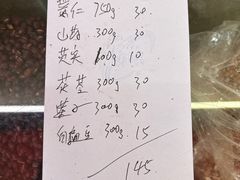 仁 750g 30
山药 300g 30
芡实 100g 10
茯苓 300g 30
300g 30
白扁豆 300g 15
145